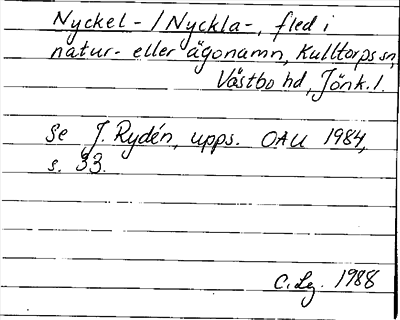 Nyckel- / Nyckla-, fled i
natur- eller ägonamn, Kulltorps sn,
Västbo hd, Jönk. l.
Se J. Rydén, upps. OAU 1984,
s. 33.
C. Lg. 1988